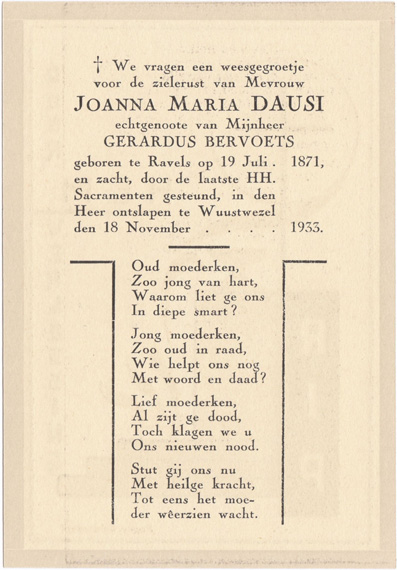 † We vragen een weesgegroetje
voor de zielerust van Mevrouw
JOANNA MARIA DAUSI
echtgenoote van Mijnheer
GERARDUS BERVOETS
geboren te Ravels op 19 Juli . 1871,
en zacht, door de laatste HH.
Sacramenten gesteund, in den
Heer ontslapen te Wuustwezel
den 18 November . . . . 1933.
Oud moederken,
Zoo jong van hart,
Waarom liet ge ons
In diepe smart?
Jong moederken,
Zoo oud in raad,
Wie helpt ons nog
Met woord en daad?
Lief moederken,
Al zijt ge dood,
Toch klagen we u
Ons nieuwen nood.
Stut gij ons nu
Met heilge kracht,
Tot eens het moe-
der wêerzien wacht.